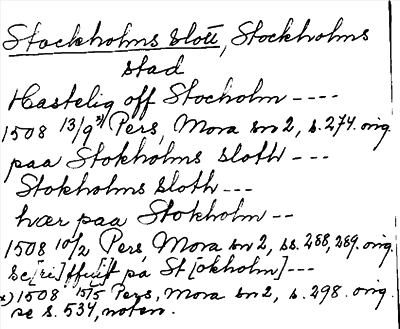 Stockholms slott, Stockholms
stad
Hastelig off Stocholm ----
1508 13/9 x) Pers, Mora sn 2, s. 274. orig.
paa Stokholms sloth ---
Stokholms sloth ---
hær paa Stokholm --
1508 10/2 Pers, Mora sn 2, ss. 288, 289. orig.
pa St[okholm] ---
x) 1508 15/5 Pers, Mora sn 2, s. 298. orig.
se s. 534, noten.